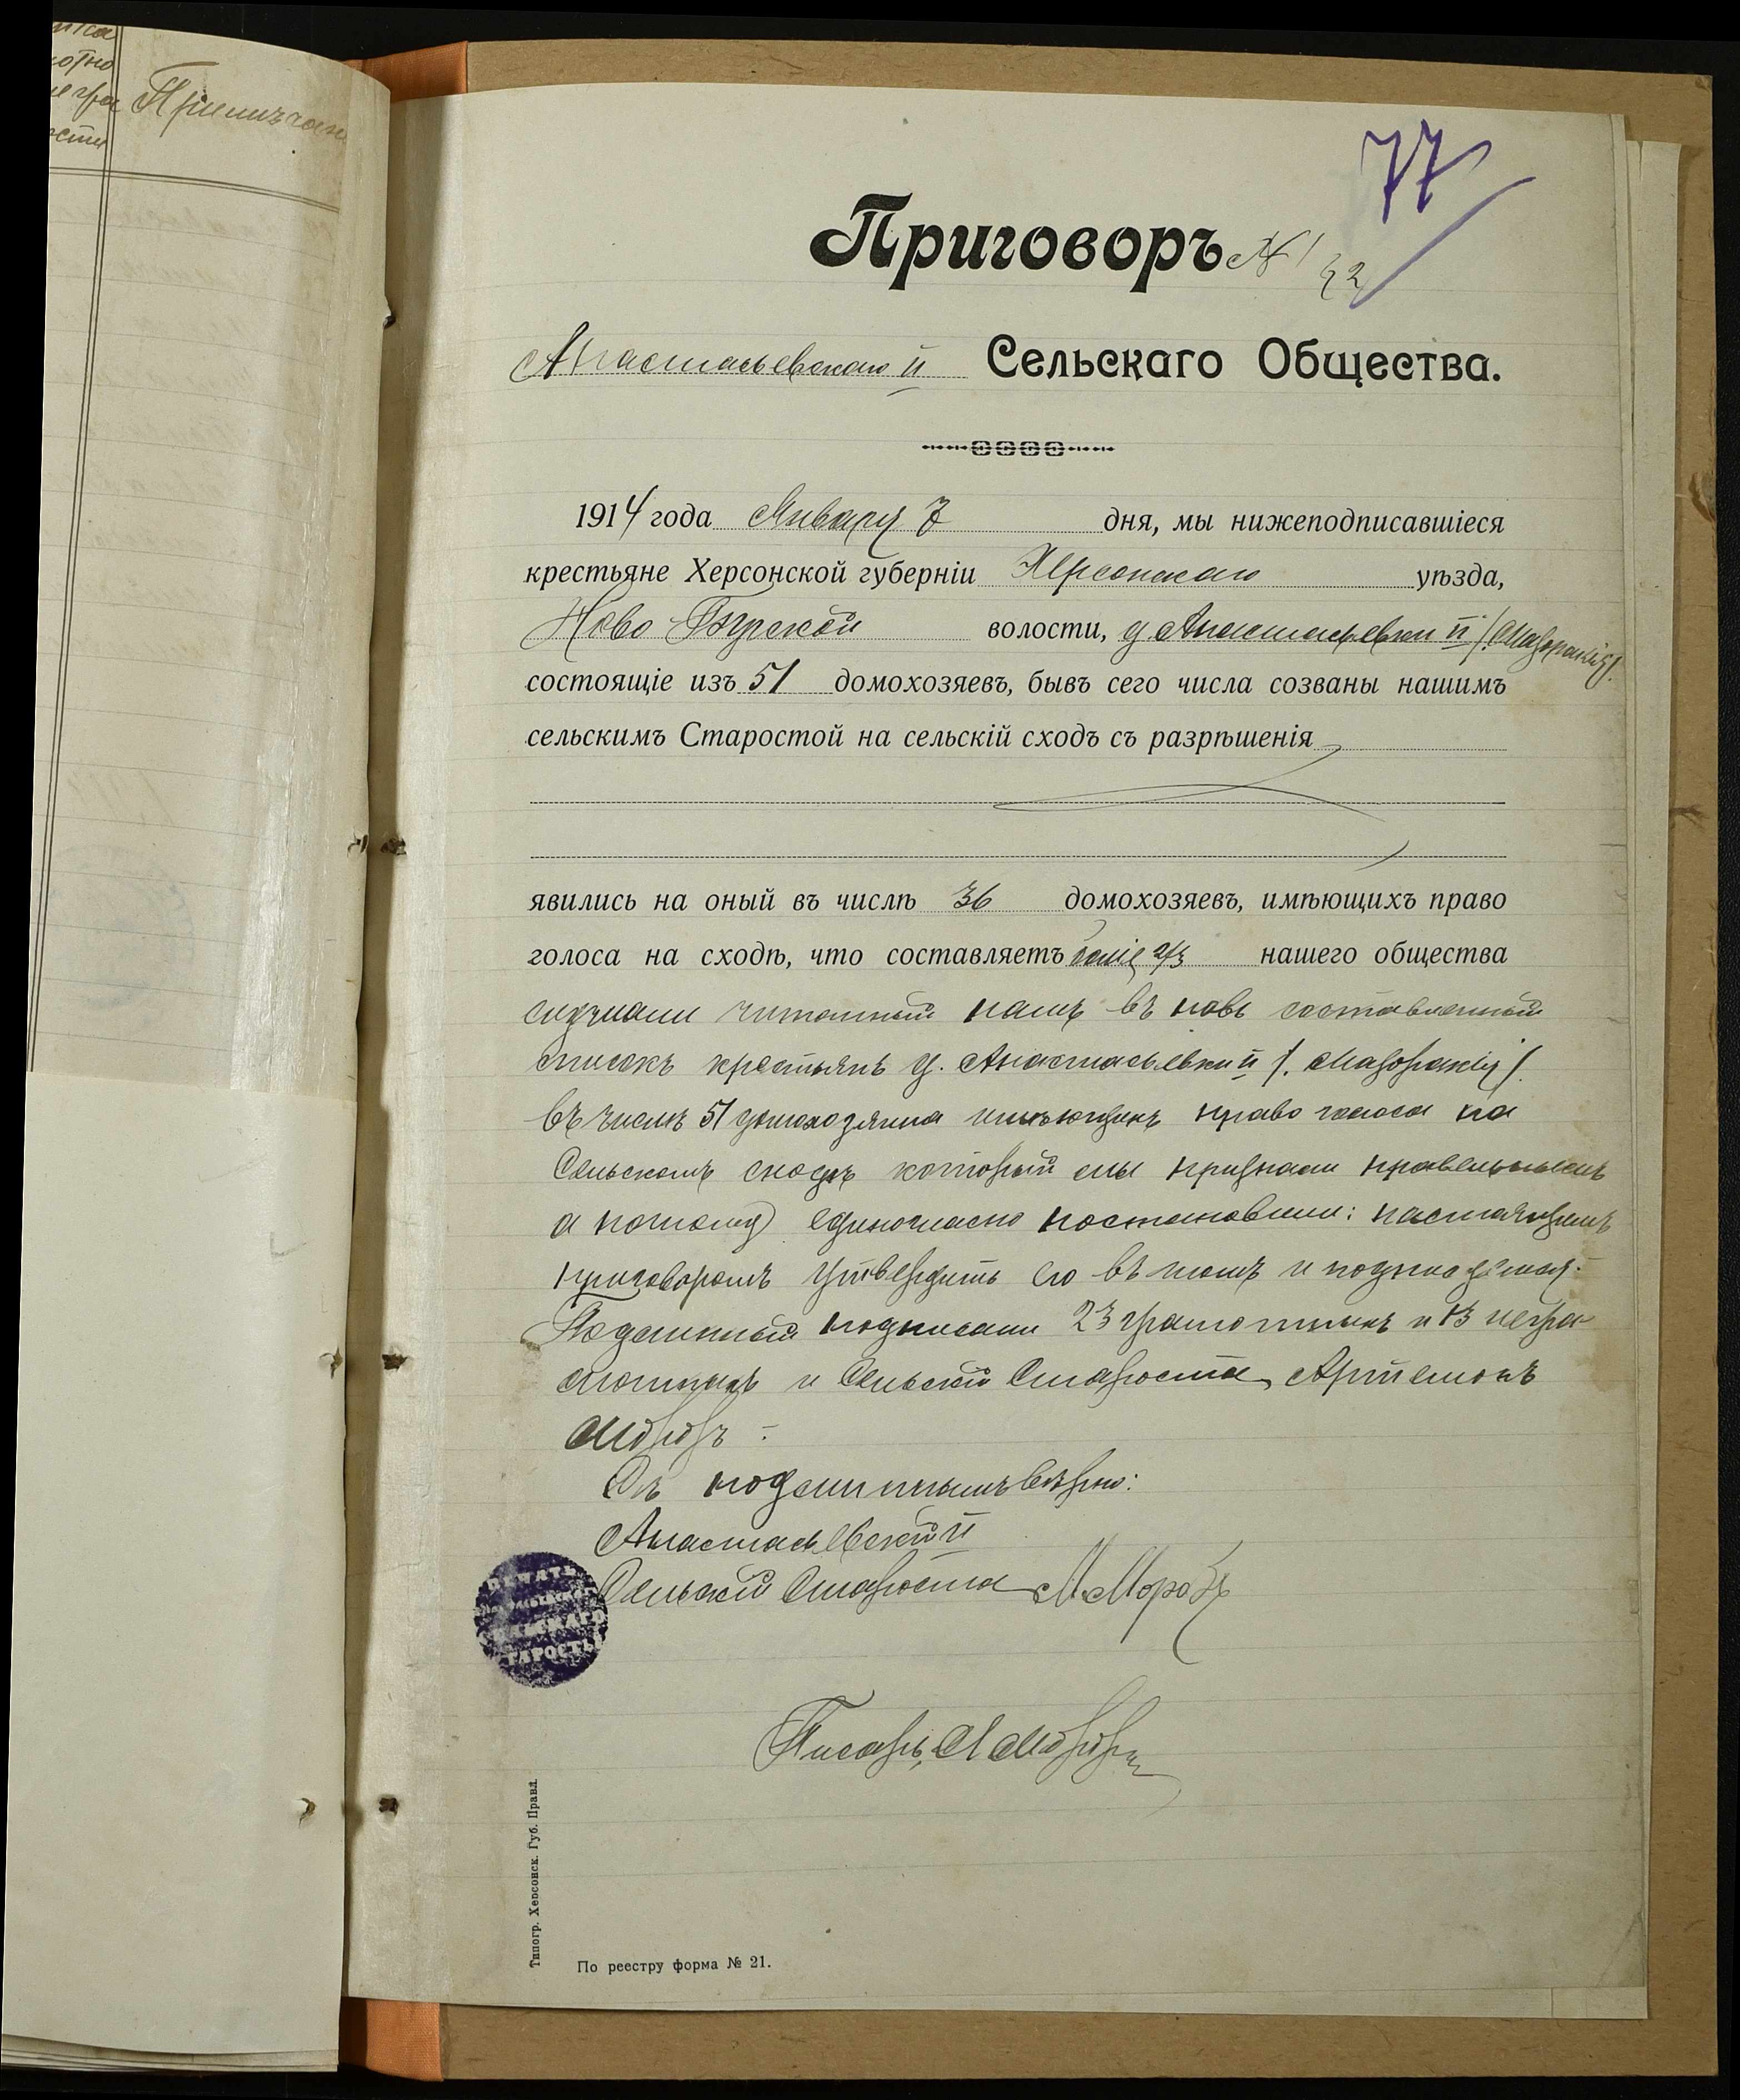 Примѣчан
77
Приговоръ № 1
32
Анастасьевскаго II Сельскаго Общества.
1914 года Января 7 дня, мы нижеподписавшіеся
крестьяне Херсонской губерніи Херсонскаго уѣзда,
Ново Бугской волости, д. Анастасьевки II /Мазоракія/
состоящіе изъ 51 домохозяевъ, бывъ сего числа созваны нашимъ
сельскимъ Старостой на сельскій сходъ съ разрѣшенія
явились на оный въ числѣ 36 домохозяевъ, имѣющихъ право
голоса на сходѣ, что составляетъ боліе 2/3 нашего общества
слушали читанный намъ въ новь составленный
списокъ крестьянъ д. Анастасьевки II /. Мазоракія/.
въ числѣ 51 домохозяина имѣющихъ право голоса на
Сельскомъ сходѣ который мы признали правельнымъ
а потому единогласно постановили: настоящимъ
приговоромъ утвердить его въ томъ и подписуемся.
Подлинный подписали 23 грамотныхъ и 13 негра-
мотныхъ и Сельскій Староста Артемонъ
Морозъ.
Съ подлиннымъ вѣрно:
Анастасьевскій II
Сельскій Староста Морозъ
Писарь, А Морозъ
ПЕЧАТЬ
Типогр. Херсонск. Губ. Правл.
По реестру форма № 21.